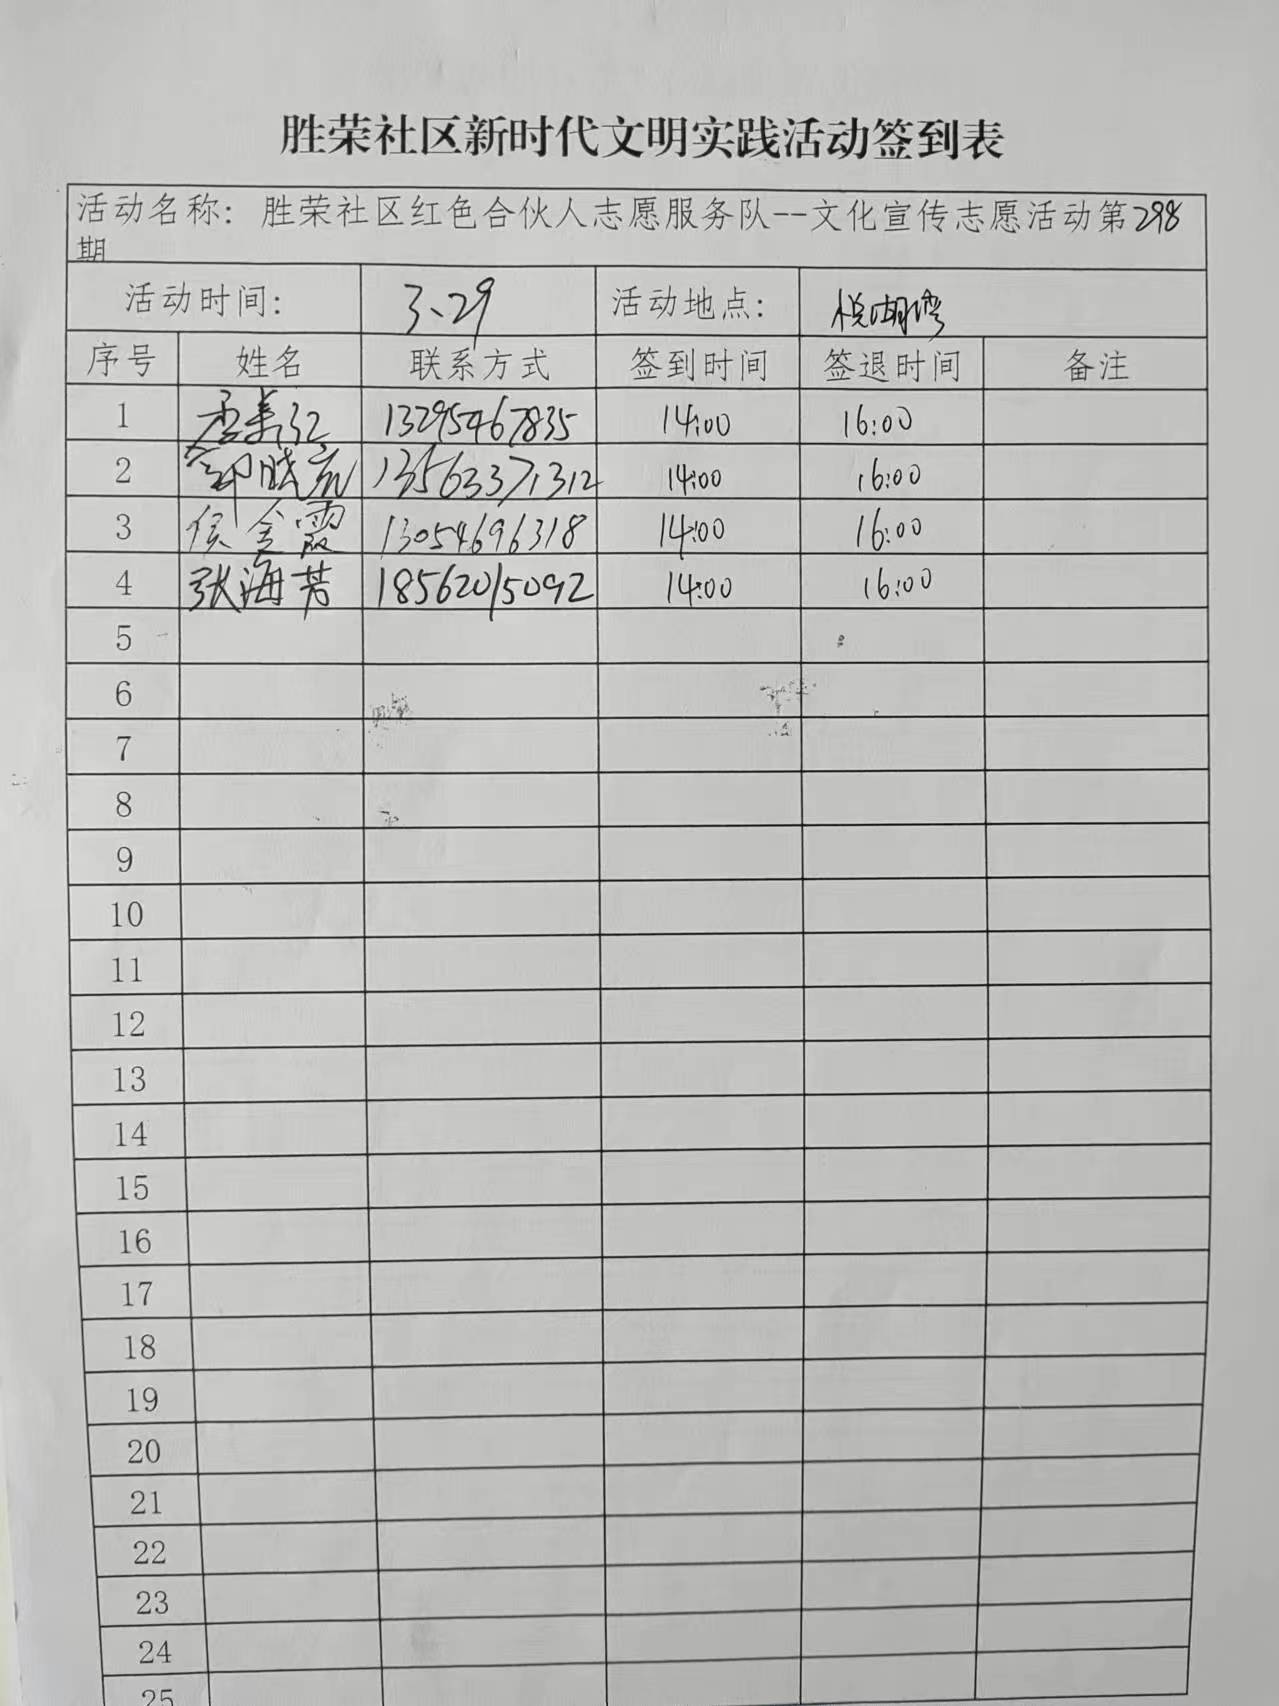 胜荣社区新时代文明实践活动签到表
活动名称：胜荣社区红色合伙人志愿服务队--文化宣传志愿活动第298
期
活动时间： 3、29 活动地点： 悦湖湾
序号 姓名 联系方式 签到时间 签退时间 备注
1 孟美红 13295467835 14:00 16:00
2 晓 13563371312 14:00 16:00
3 侯金霞 13054696318 14:00 16:00
4 张海芳 18562015092 14:00 16:00
5
6
7
8
9
10
11
12
13
14
15
16
17
18
19
20
21
22
23
24
25